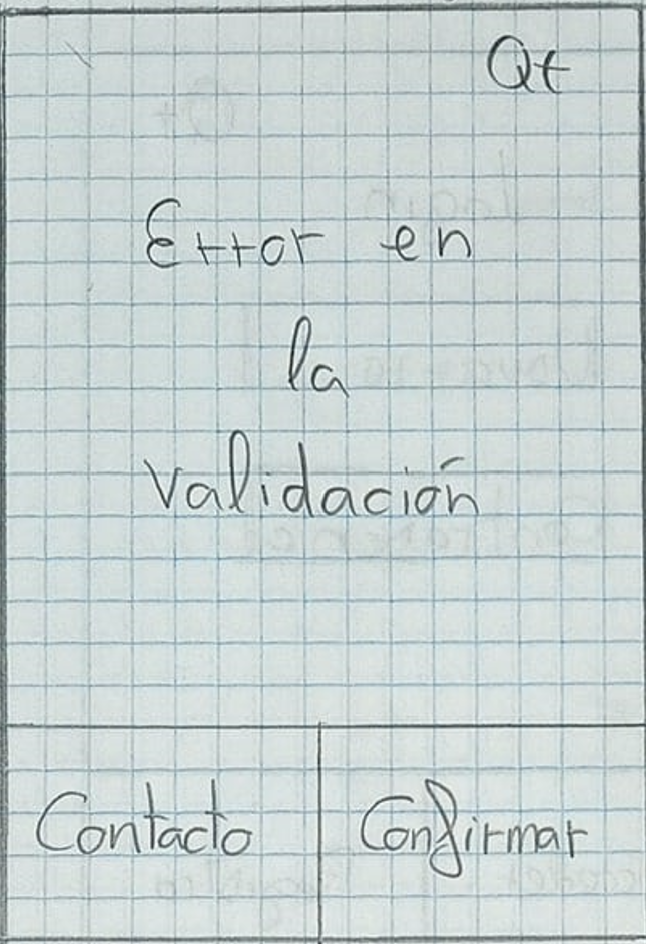 Qt
Error en
la
validación
Contacto
Confirmar